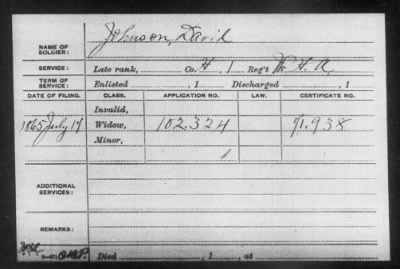 NAME OF SOLDIER: Johnson, David
SERVICE: Late rank, Co. H, 1 Reg't H. A.
TERM OF SERVICE: Enlisted , 1 Discharged , 1
DATE OF FILING. CLASS. APPLICATION NO. LAW. CERTIFICATE NO.
Invalid,
1865 July 17 Widow, 102.324 71.938
Minor,
ADDITIONAL SERVICES:
REMARKS:
Died , 1 , at